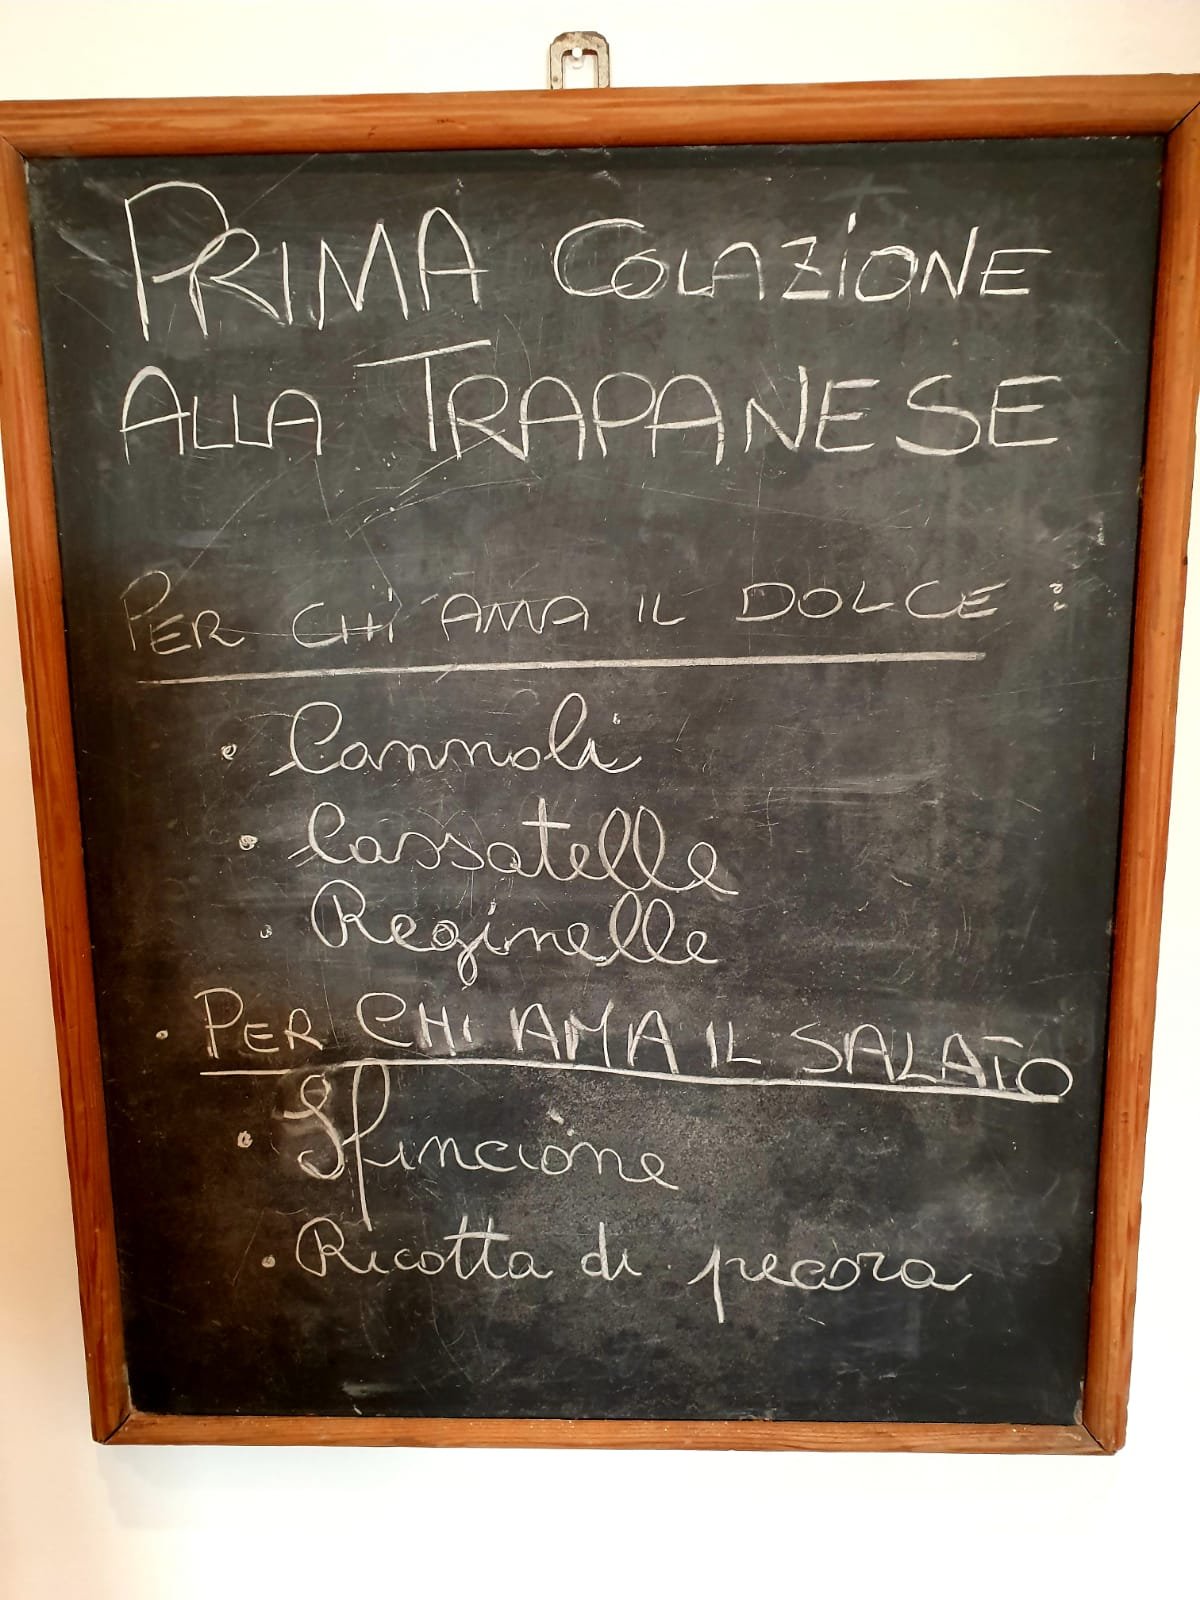 PRIMA COLAZIONE
ALLA TRAPANESE
PER CHI AMA IL DOLCE :
• Cannoli
• Cassatelle
• Reginelle
• PER CHI AMA IL SALATO
• Sfincione
• Ricotta di pecora